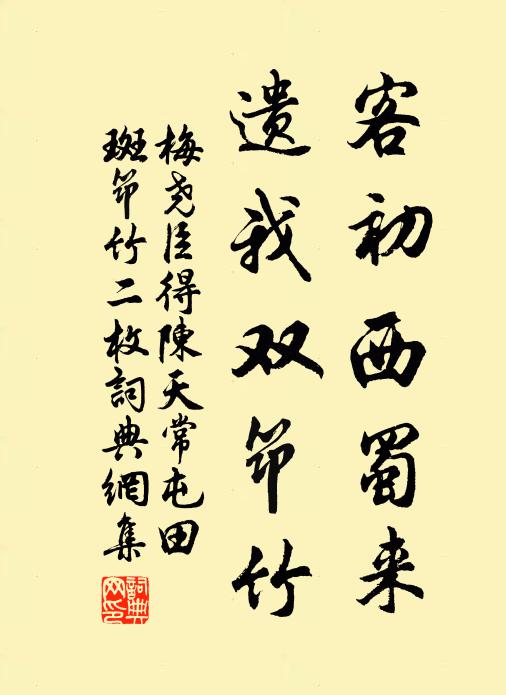 客初西蜀来
遗我双筇竹
梅尧臣得陳天常屯田
斑筇竹二枚詞典網集
詞典网印